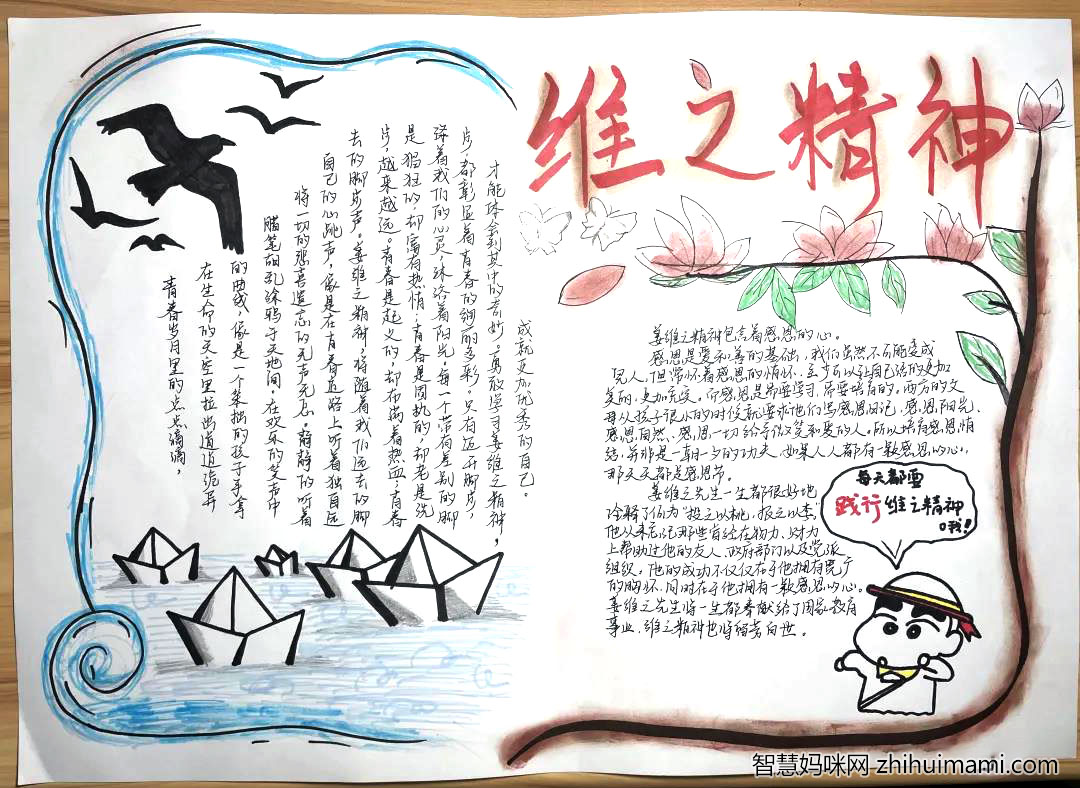 维之精神
青春岁月里的点点滴滴，
在生命的天空里拉出道道诡异
的曲线，像是一个笨拙的孩子手拿
腊笔胡乱涂鸦于天地间，在欢乐的笑声中
将一切的悲喜遗忘的无声无息。静静的听着
自己的心跳声，像是在青春道路上听着独自远
去的脚步声。姜维之精神，将随着我们远去的脚
步，越来越远。青春是起义的，却布满着热血；青春
是猖狂的，却富有热情；青春是固执的，却老是洗
涤着我们的心灵，沐浴着阳光，每一个带有差别的脚
步，都彰显着青春的绚丽多彩。只有迈开脚步，
才能体会到其中的奇妙，勇敢学习姜维之精神，
成就更加优秀的自己。
姜维之精神包含着感恩的心。
感恩是爱和善的基础，我们虽然不可能变成
完人，但常怀着感恩的情怀，至少可以让自己活的更加
美丽，更加充实。你感恩是需要学习，需要培育的。西方的父
母从孩子很小的时侯就要求他们写感恩日记，感恩阳光、
感恩自然、感恩一切给予你欢笑和爱的人。所以培育感恩情
结，并非是一朝一夕的功夫，如果人人都有一颗感恩的心，
那天天都是感恩节。
姜维之先生一生都很好地
诠释了何为“投之以桃，报之以李”
他从来忘记那些曾经在物力、财力
上帮助过他的友人、政府部门以及党派
组织。他的成功不仅仅在于他拥有宽广
的胸怀，同时在于他拥有一颗感恩的心。
姜维之先生将一生都奉献给了国家教育
事业，维之精神也将留芳百世。
每天都要
践行维之精神
哦！
智慧妈咪网 zhihuimami.com